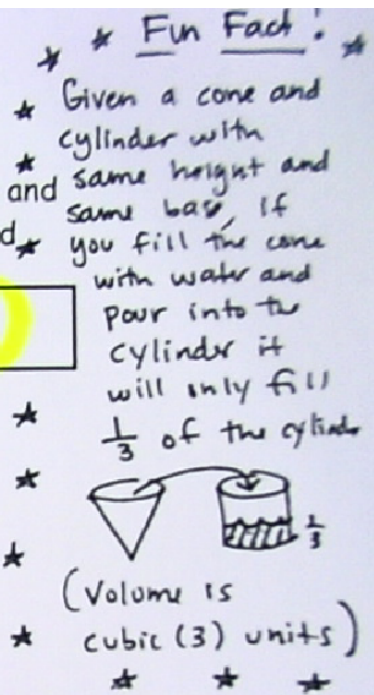 Fun Fact!
Given a cone and
cylinder with
same height and
and
same base, if
d
you fill the cone
with water and
pour into the
cylinder it
will only fill
1/3 of the cylinder
1/3
(Volume is
cubic (3) units)